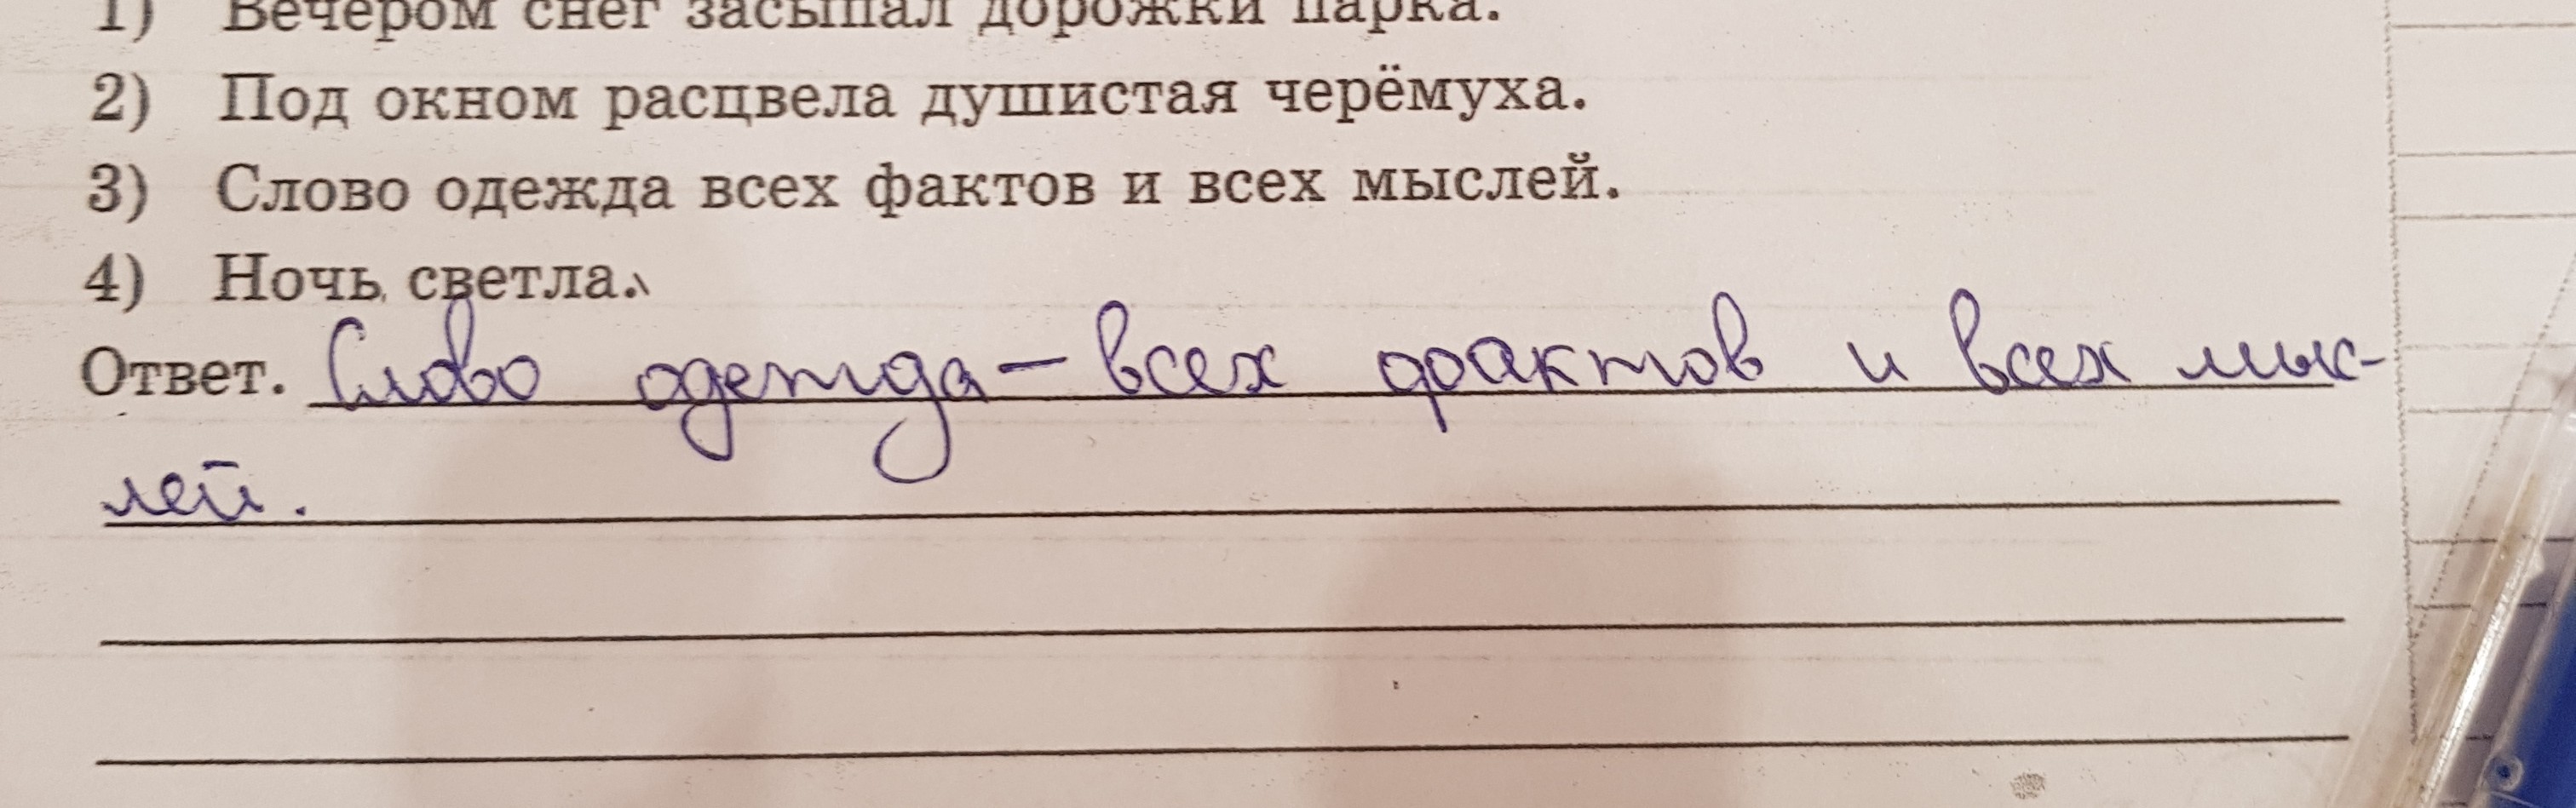 1) Вечером снег засыпал дорожки парка.
2) Под окном расцвела душистая черёмуха.
3) Слово одежда всех фактов и всех мыслей.
4) Ночь светла.
Ответ. Слово одежда — всех фактов и всех мыс-
лей.